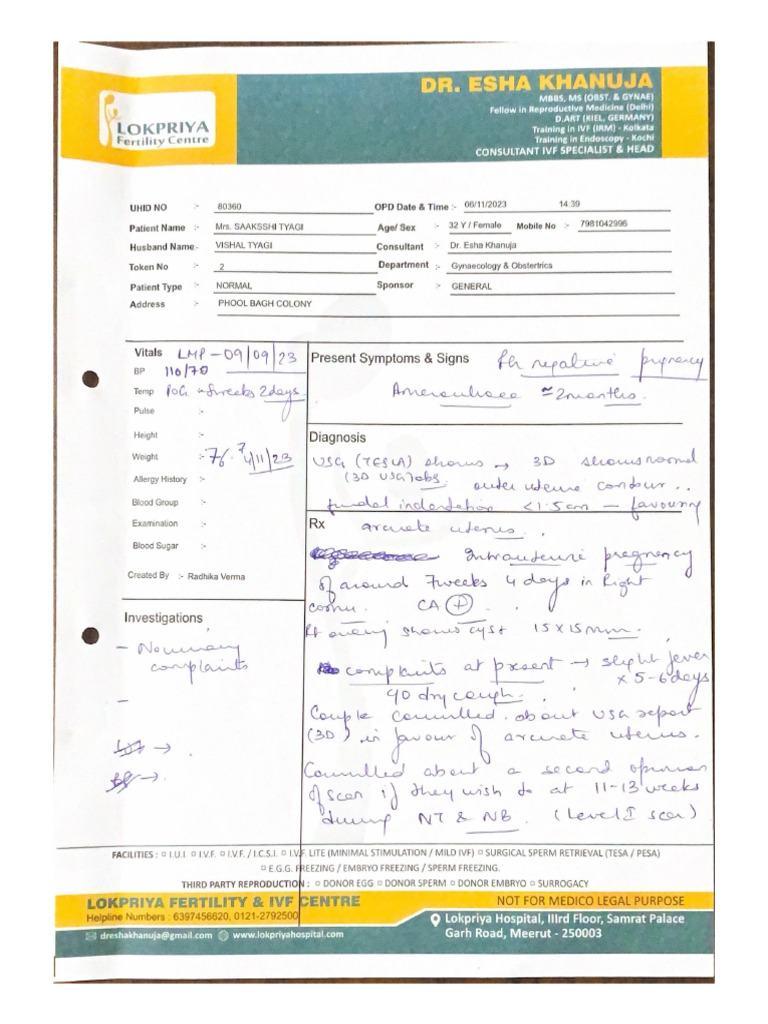 DR. ESHA KHANUJA
MBBS, MS (OBST. & GYNAE)
Fellow in Reproductive Medicine (Delhi)
D.ART (KIEL, GERMANY)
Training in IVF (IRM) - Kolkata
Training in Endoscopy - Kochi
CONSULTANT IVF SPECIALIST & HEAD
LOKPRIYA
Fertility Centre
UHID NO :- 80360 OPD Date & Time :- 06/11/2023 14:39
Patient Name :- Mrs. SAAKSSHI TYAGI Age/ Sex :- 32 Y / Female Mobile No :- 7981042996
Husband Name:- VISHAL TYAGI Consultant :- Dr. Esha Khanuja
Token No :- 2 Department :- Gynaecology & Obstetrics
Patient Type :- NORMAL Sponsor :- GENERAL
Address :- PHOOL BAGH COLONY
Vitals LMP - 09/09/23
BP 110/70
Temp POG 8weeks 2days
Pulse :-
Height :-
Weight :- 76.7 4/11/23
Allergy History :-
Blood Group :-
Examination :-
Blood Sugar :-
Created By :- Radhika Verma
Investigations
- No
complaints
-
Present Symptoms & Signs Rh negative pregnancy
≈ 2 months.
Diagnosis
USG (TESLA) shows → 3D shows normal
(3D USG) obs. outer uterine contour..
fundal indentation <1.5cm - favouring
Rx arcuate uterus.
Intrauterine pregnancy
of around 7weeks 4 days in Right
cornu. CA (+).
Rt ovary shows cyst 15 x 15 mm.
complaints at present → slight fever x 5-6 days
90 dry cough.
Couple counselled about USG report
(3D) in favour of arcuate uterus.
Counselled about a second opinion
of scan if they wish to at 11-13 weeks
during NT & NB. (Level I scan)
FACILITIES : □ I.U.I □ I.V.F. □ I.V.F. / I.C.S.I. □ I.V.F. LITE (MINIMAL STIMULATION / MILD IVF) □ SURGICAL SPERM RETRIEVAL (TESA / PESA)
□ E.G.G. FREEZING / EMBRYO FREEZING / SPERM FREEZING.
THIRD PARTY REPRODUCTION : □ DONOR EGG □ DONOR SPERM □ DONOR EMBRYO □ SURROGACY
LOKPRIYA FERTILITY & IVF CENTRE NOT FOR MEDICO LEGAL PURPOSE
Helpline Numbers : 6397456620, 0121-2792500
Lokpriya Hospital, IIIrd Floor, Samrat Palace
dreshakhanuja@gmail.com www.lokpriyahospital.com Garh Road, Meerut - 250003